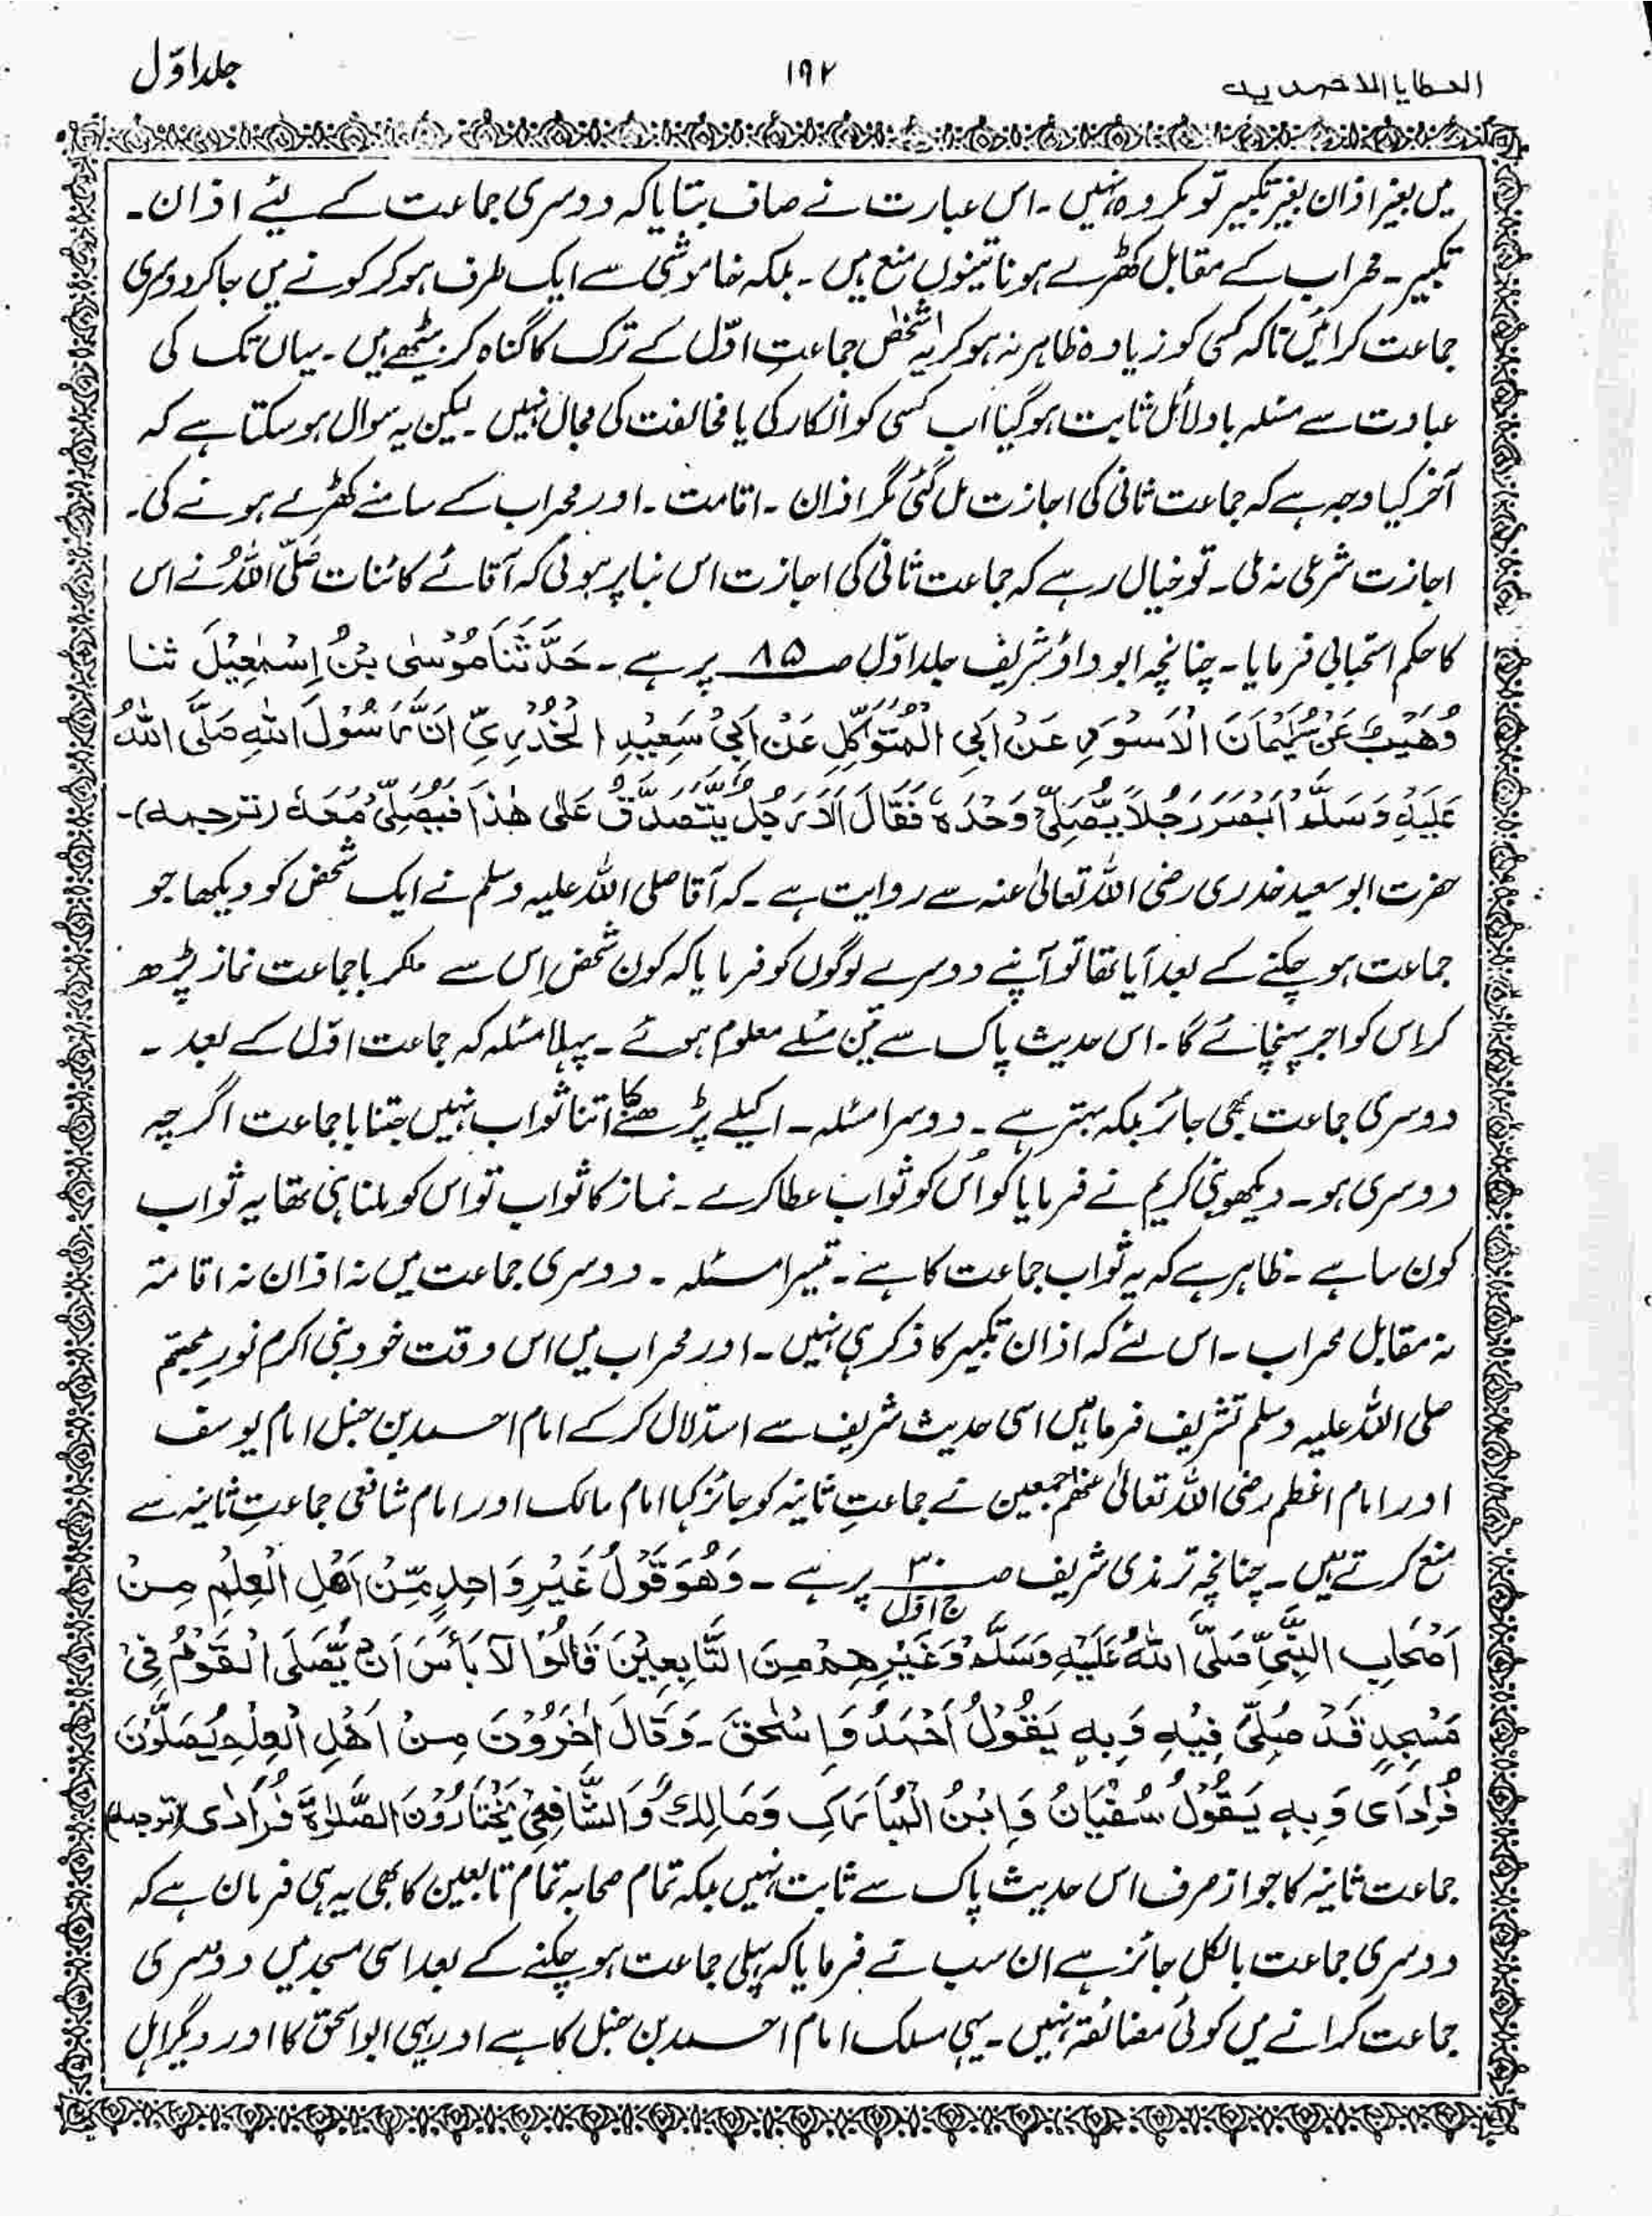 العطایا الاحمدیہ
۱۹۲
جلد اوّل
میں بغیر اذان بغیر تکبیر تو مکروہ نہیں ۔ اس عبارت نے صاف بتایا کہ دوسری جماعت کے لیئے اذان ۔
تکبیر ۔ محراب کے مقابل کھڑے ہونا تینوں منع ہیں ۔ بلکہ خاموشی سے ایک طرف ہو کر کونے میں جا کر دوسری
جماعت کرائیں تاکہ کسی کو زیادہ ظاہر نہ ہو کر یہ اشخاص جماعتِ اوّل کے ترک کا گناہ کر بیٹھے ہیں ۔ یہاں تک کی
عبادت سے مسئلہ بادلائل ثابت ہو گیا اب کسی کو انکار کی یا مخالفت کی مجال نہیں ۔ لیکن یہ سوال ہو سکتا ہے کہ
آخر کیا وجہ ہے کہ جماعت ثانی کی اجازت مل گئی مگر اذان ۔ اقامت ۔ اور محراب کے سامنے کھڑے ہونے کی ۔
اجازت شرعی نہ ملی ۔ تو خیال رہے کہ جماعت ثانی کی اجازت اس بنا پر ہوئی کہ آقائے کائنات صَلَّی اللہُ نے اس
کا حکم استحبابی فرمایا ۔ چنانچہ ابو داؤد شریف جلد اوّل صـ ۸۵ پر ہے ۔ حَدَّثَنَا مُوْسٰی بْنُ اِسْمٰعِیْلَ ثنا
وُهَیْبٌ عَنْ سُلَیْمَانَ الْاَسْوَدِ عَنْ اَبِی الْمُتَوَکِّلِ عَنْ اَبِیْ سَعِیْدِ الْخُدْرِیِّ اَنَّ رَسُوْلَ اللهِ صَلَّی اللهُ
عَلَیْهِ وَسَلَّمَ اَبْصَرَ رَجُلًا یُّصَلِّیْ وَحْدَهٗ فَقَالَ اَلَا رَجُلٌ یَّتَصَدَّقُ عَلٰی هٰذَا فَیُصَلِّیْ مَعَهٗ (ترجمہ) ۔
حضرت ابو سعید خدری رضی اللہ تعالیٰ عنہ سے روایت ہے ۔ کہ آقا صلی اللہ علیہ وسلم نے ایک شخص کو دیکھا جو
جماعت ہو چکنے کے بعد آیا تھا تو آپنے دوسرے لوگوں کو فرمایا کہ کون شخص اِس سے ملکر باجماعت نماز پڑھ
کر اس کو اجر پہنچائے گا ۔ اس حدیث پاک سے تین مسئلے معلوم ہوئے ۔ پہلا مسئلہ کہ جماعت اوّل کے بعد ۔
دوسری جماعت بھی جائز بلکہ بہتر ہے ۔ دوسرا مسئلہ ۔ اکیلے پڑھنے کا اتنا ثواب نہیں جتنا باجماعت اگرچہ
دوسری ہو ۔ دیکھو نبی کریم نے فرمایا کو اُس کو ثواب عطا کرے ۔ نماز کا ثواب تو اس کو ملنا ہی تھا یہ ثواب
کون سا ہے ۔ ظاہر ہے کہ یہ ثواب جماعت کا ہے ۔ تیسرا مسئلہ ۔ دوسری جماعت میں نہ اذان نہ اقامتہ
نہ مقابل محراب ۔ اس لئے کہ اذان تکبیر کا ذکر ہی نہیں ۔ اور محراب میں اس وقت خود نبی اکرم نورِ مجسّم
صلی اللہ علیہ وسلم تشریف فرما ہیں اسی حدیث شریف سے استدلال کر کے امام احمد بن حنبل امام یوسف
اور امام اعظم رضی اللہ تعالیٰ عنھم اجمعین نے جماعتِ ثانیہ کو جائز کہا امام مالک اور امام شافعی جماعتِ ثانیہ سے
منع کرتے ہیں ۔ چنانچہ ترمذی شریف صـ ۳۰ پر ہے ۔ وَهُوَ قَوْلُ غَیْرِ وَاحِدٍ مِّنْ اَهْلِ الْعِلْمِ مِنْ
ج اوّل
اَصْحَابِ النَّبِیِّ صَلَّی اللهُ عَلَیْهِ وَسَلَّمَ وَغَیْرِهِمْ مِنَ التَّابِعِیْنَ قَالُوْا لَا بَأْسَ اَنْ یُّصَلَّی الْقَوْمُ فِیْ
مَسْجِدٍ قَدْ صُلِّیَ فِیْهِ وَبِهٖ یَقُوْلُ اَحْمَدُ وَاِسْحٰقَ ۔ وَقَالَ اٰخَرُوْنَ مِنْ اَهْلِ الْعِلْمِ یُصَلُّوْنَ
فُرَادَای وَبِهٖ یَقُوْلُ سُفْیَانُ وَابْنُ الْمُبَارَکِ وَمَالِکُ وَالشَّافِعِیْ یَخْتَارُوْنَ الصَّلٰوةَ فُرَادٰی (توجمہ)
جماعت ثانیہ کا جواز صرف اس حدیث پاک سے ثابت نہیں بلکہ تمام صحابہ تمام تابعین کا بھی یہ ہی فرمان ہے کہ
دوسری جماعت بالکل جائز ہے ان سب نے فرمایا کہ پہلی جماعت ہو چکنے کے بعد اسی مسجد میں دوسری
جماعت کرانے میں کوئی مضائقہ نہیں ۔ یہی مسلک امام احمد بن حنبل کا ہے اور یہی ابو اسحٰق کا اور دیگر اہل